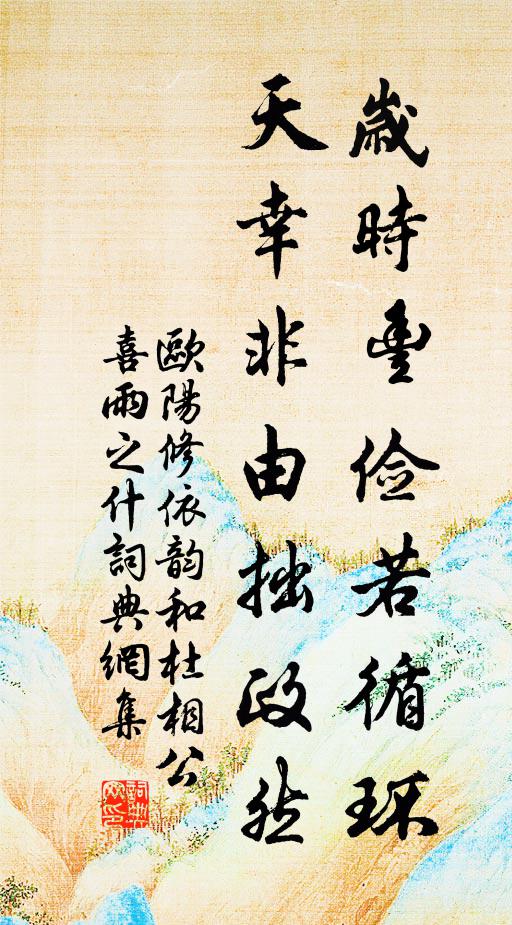 歲時豐儉若循环
天幸非由拙政然
歐陽修依韵和杜相公
喜雨之什詞典網集